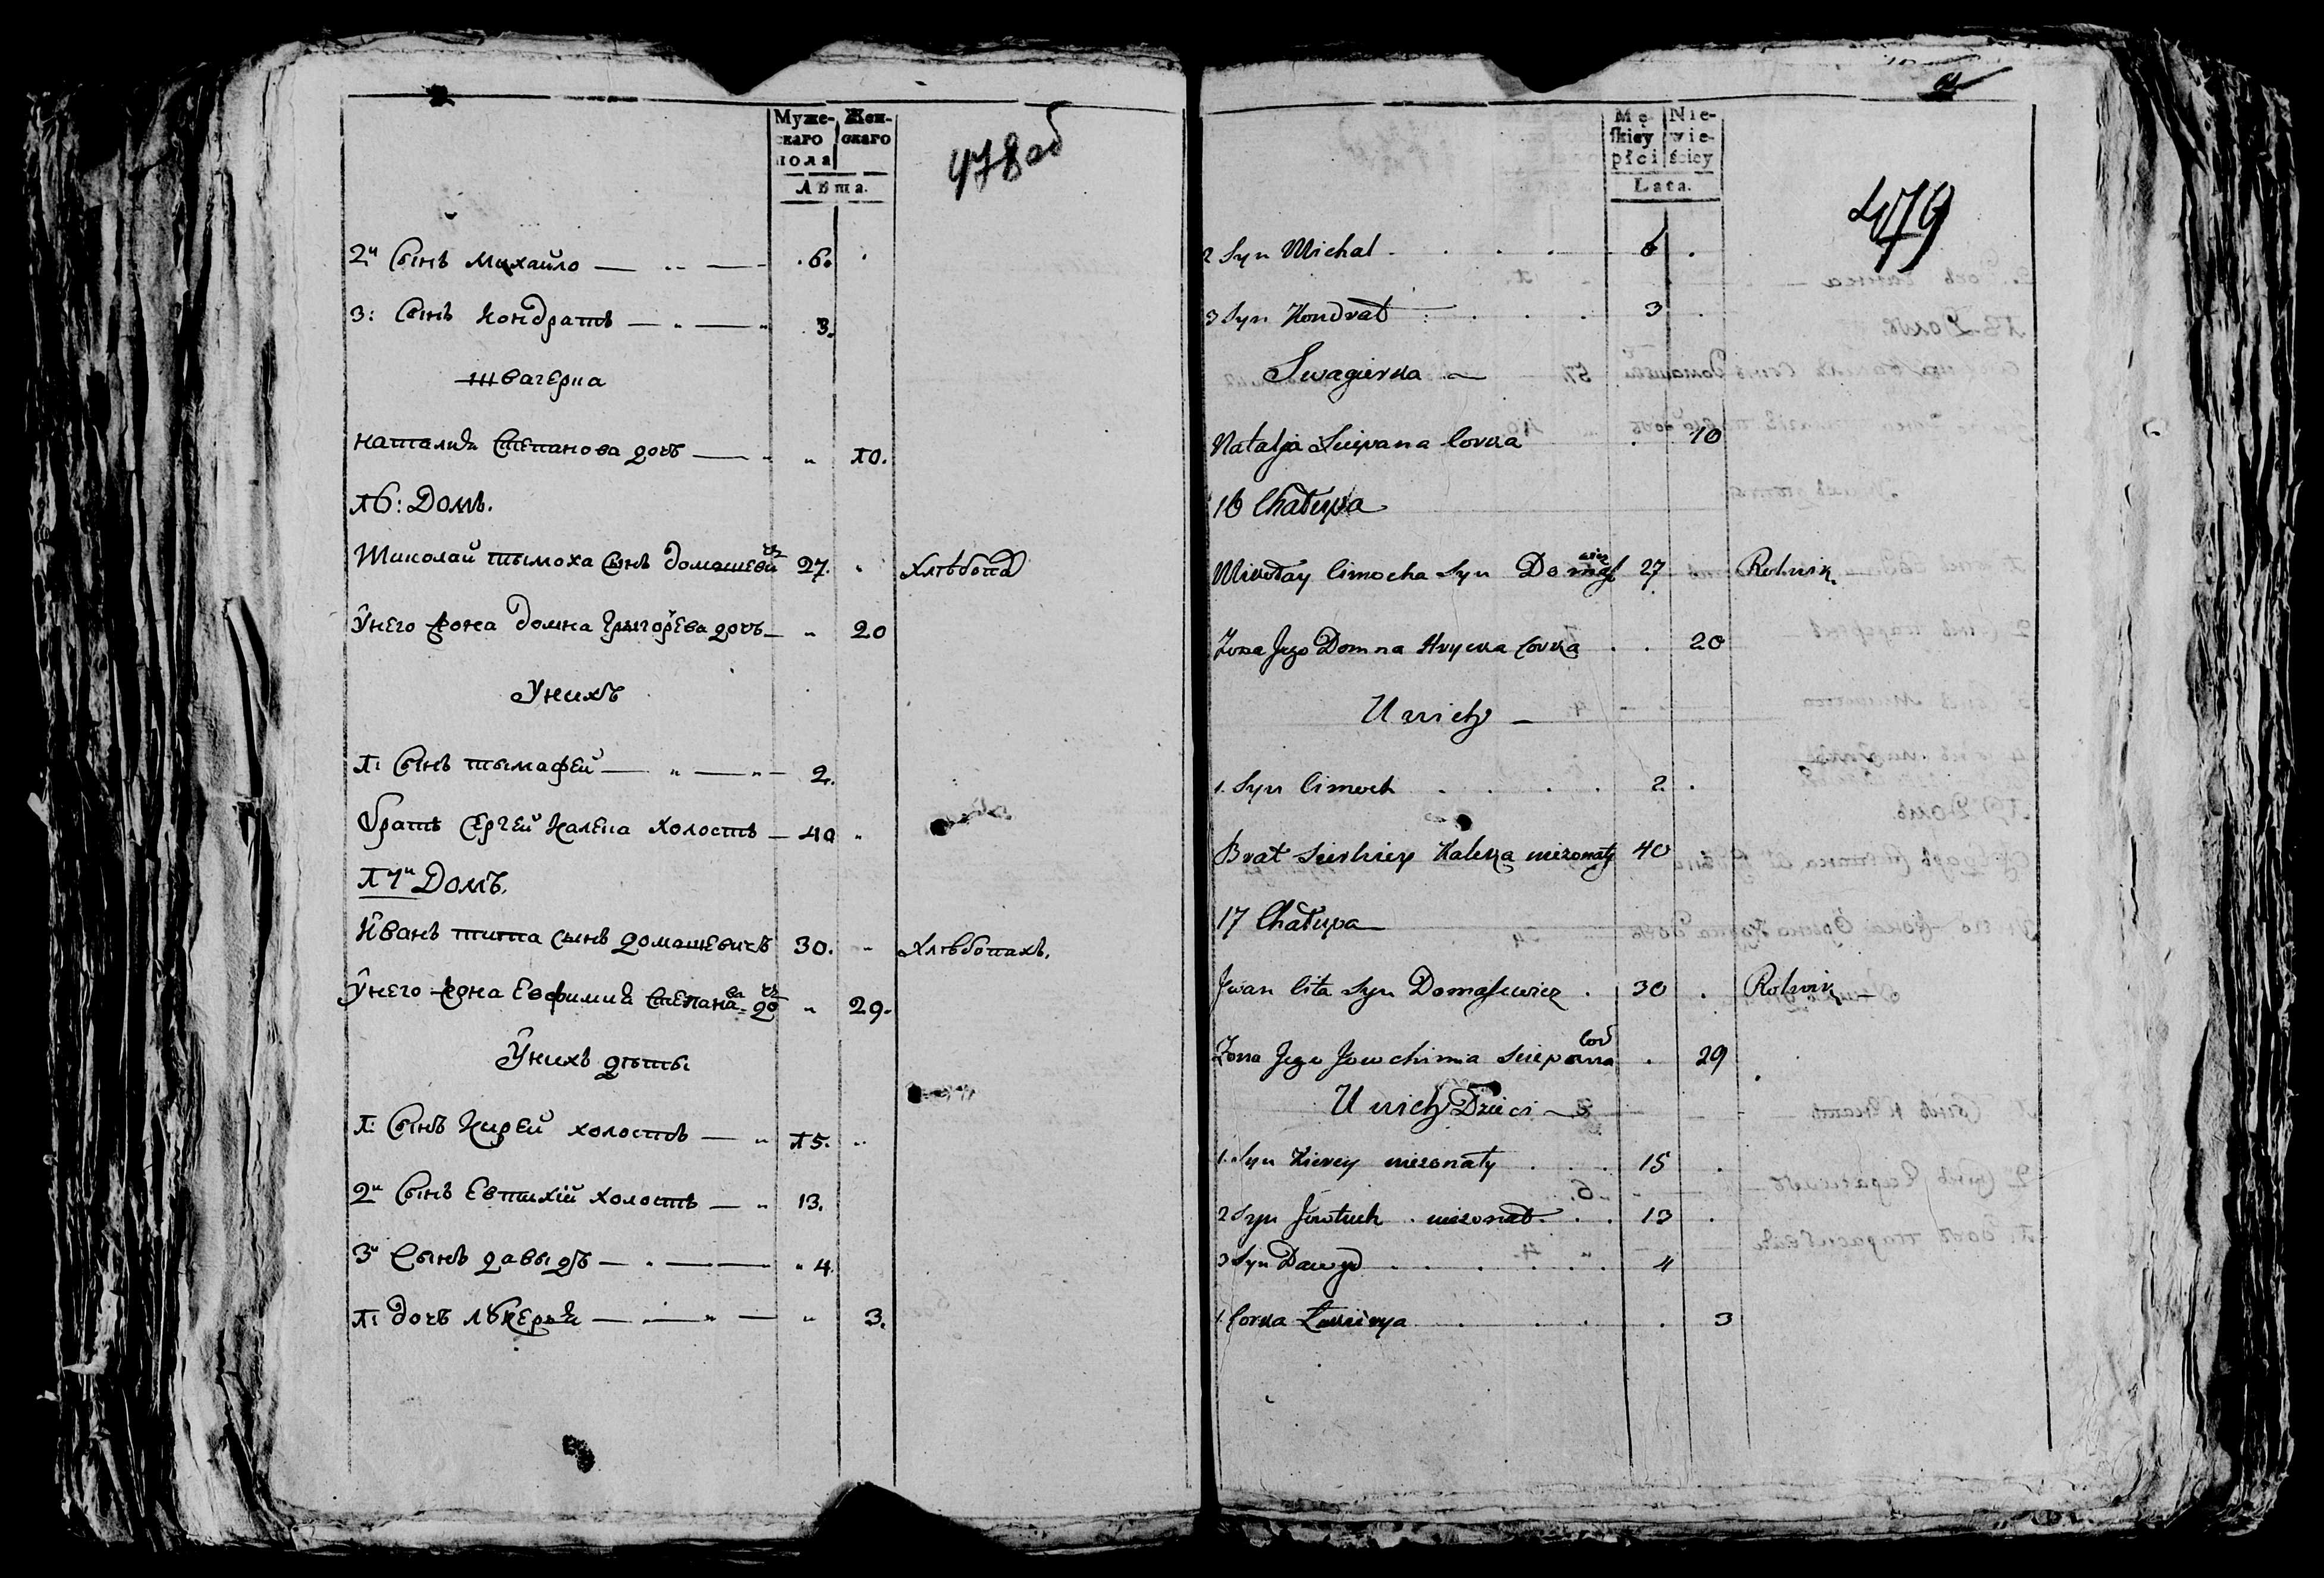 Муже- Жен-
скаго скаго
пола
Лѣта.
478 об
2й Сынъ Михайло 6.
3: Сынъ Кондратъ 3.
швагерка
Наталия Степанова дочъ 10.
16: Домъ.
Миколай тымоха Сынъ домашевичъ 27. Хлѣбопа
Унего жона домна Грыгорева дочъ 20
Унихъ
1: Сынъ тымафей 2.
братъ Сергей Калека холостъ 40
17й Домъ.
Иванъ тита сынъ домашевичъ 30. Хлѣбопахъ.
Унего жона Евфимия Степанава дочъ 29.
Унихъ дѣты
1: Сынъ Кирей холостъ 15.
2й Сынъ Евтихій холостъ 13.
3й Сынъ давыдъ 4.
1: дочъ лукерыя 3.
Mę- Nie-
skiey wie-
płci ściey
Lata.
479
2 Syn Michal 6
3 Syn Kondrat 3
Swagierka
Natalja Sciepana Corka 10
16 Chałupa
Mikołay Cimocha Syn Domaszewicz 27 Rolnik
Zona Jego Domna Hrycka Corka 20
U nich
1. Syn Cimoch 2
Brat Sierhiey Kaleka niezonaty 40
17 Chałupa
Jwan Cita Syn Domaszewicz 30 Rolnik
Zona Jego Jowchimia Sciepana Cor 29
U nich Dzieci
1. Syn Kierey niezonaty 15
2 Syn Jówtuch niezonat 13
3 Syn Dawyd 4
1. Corka Łukierya 3